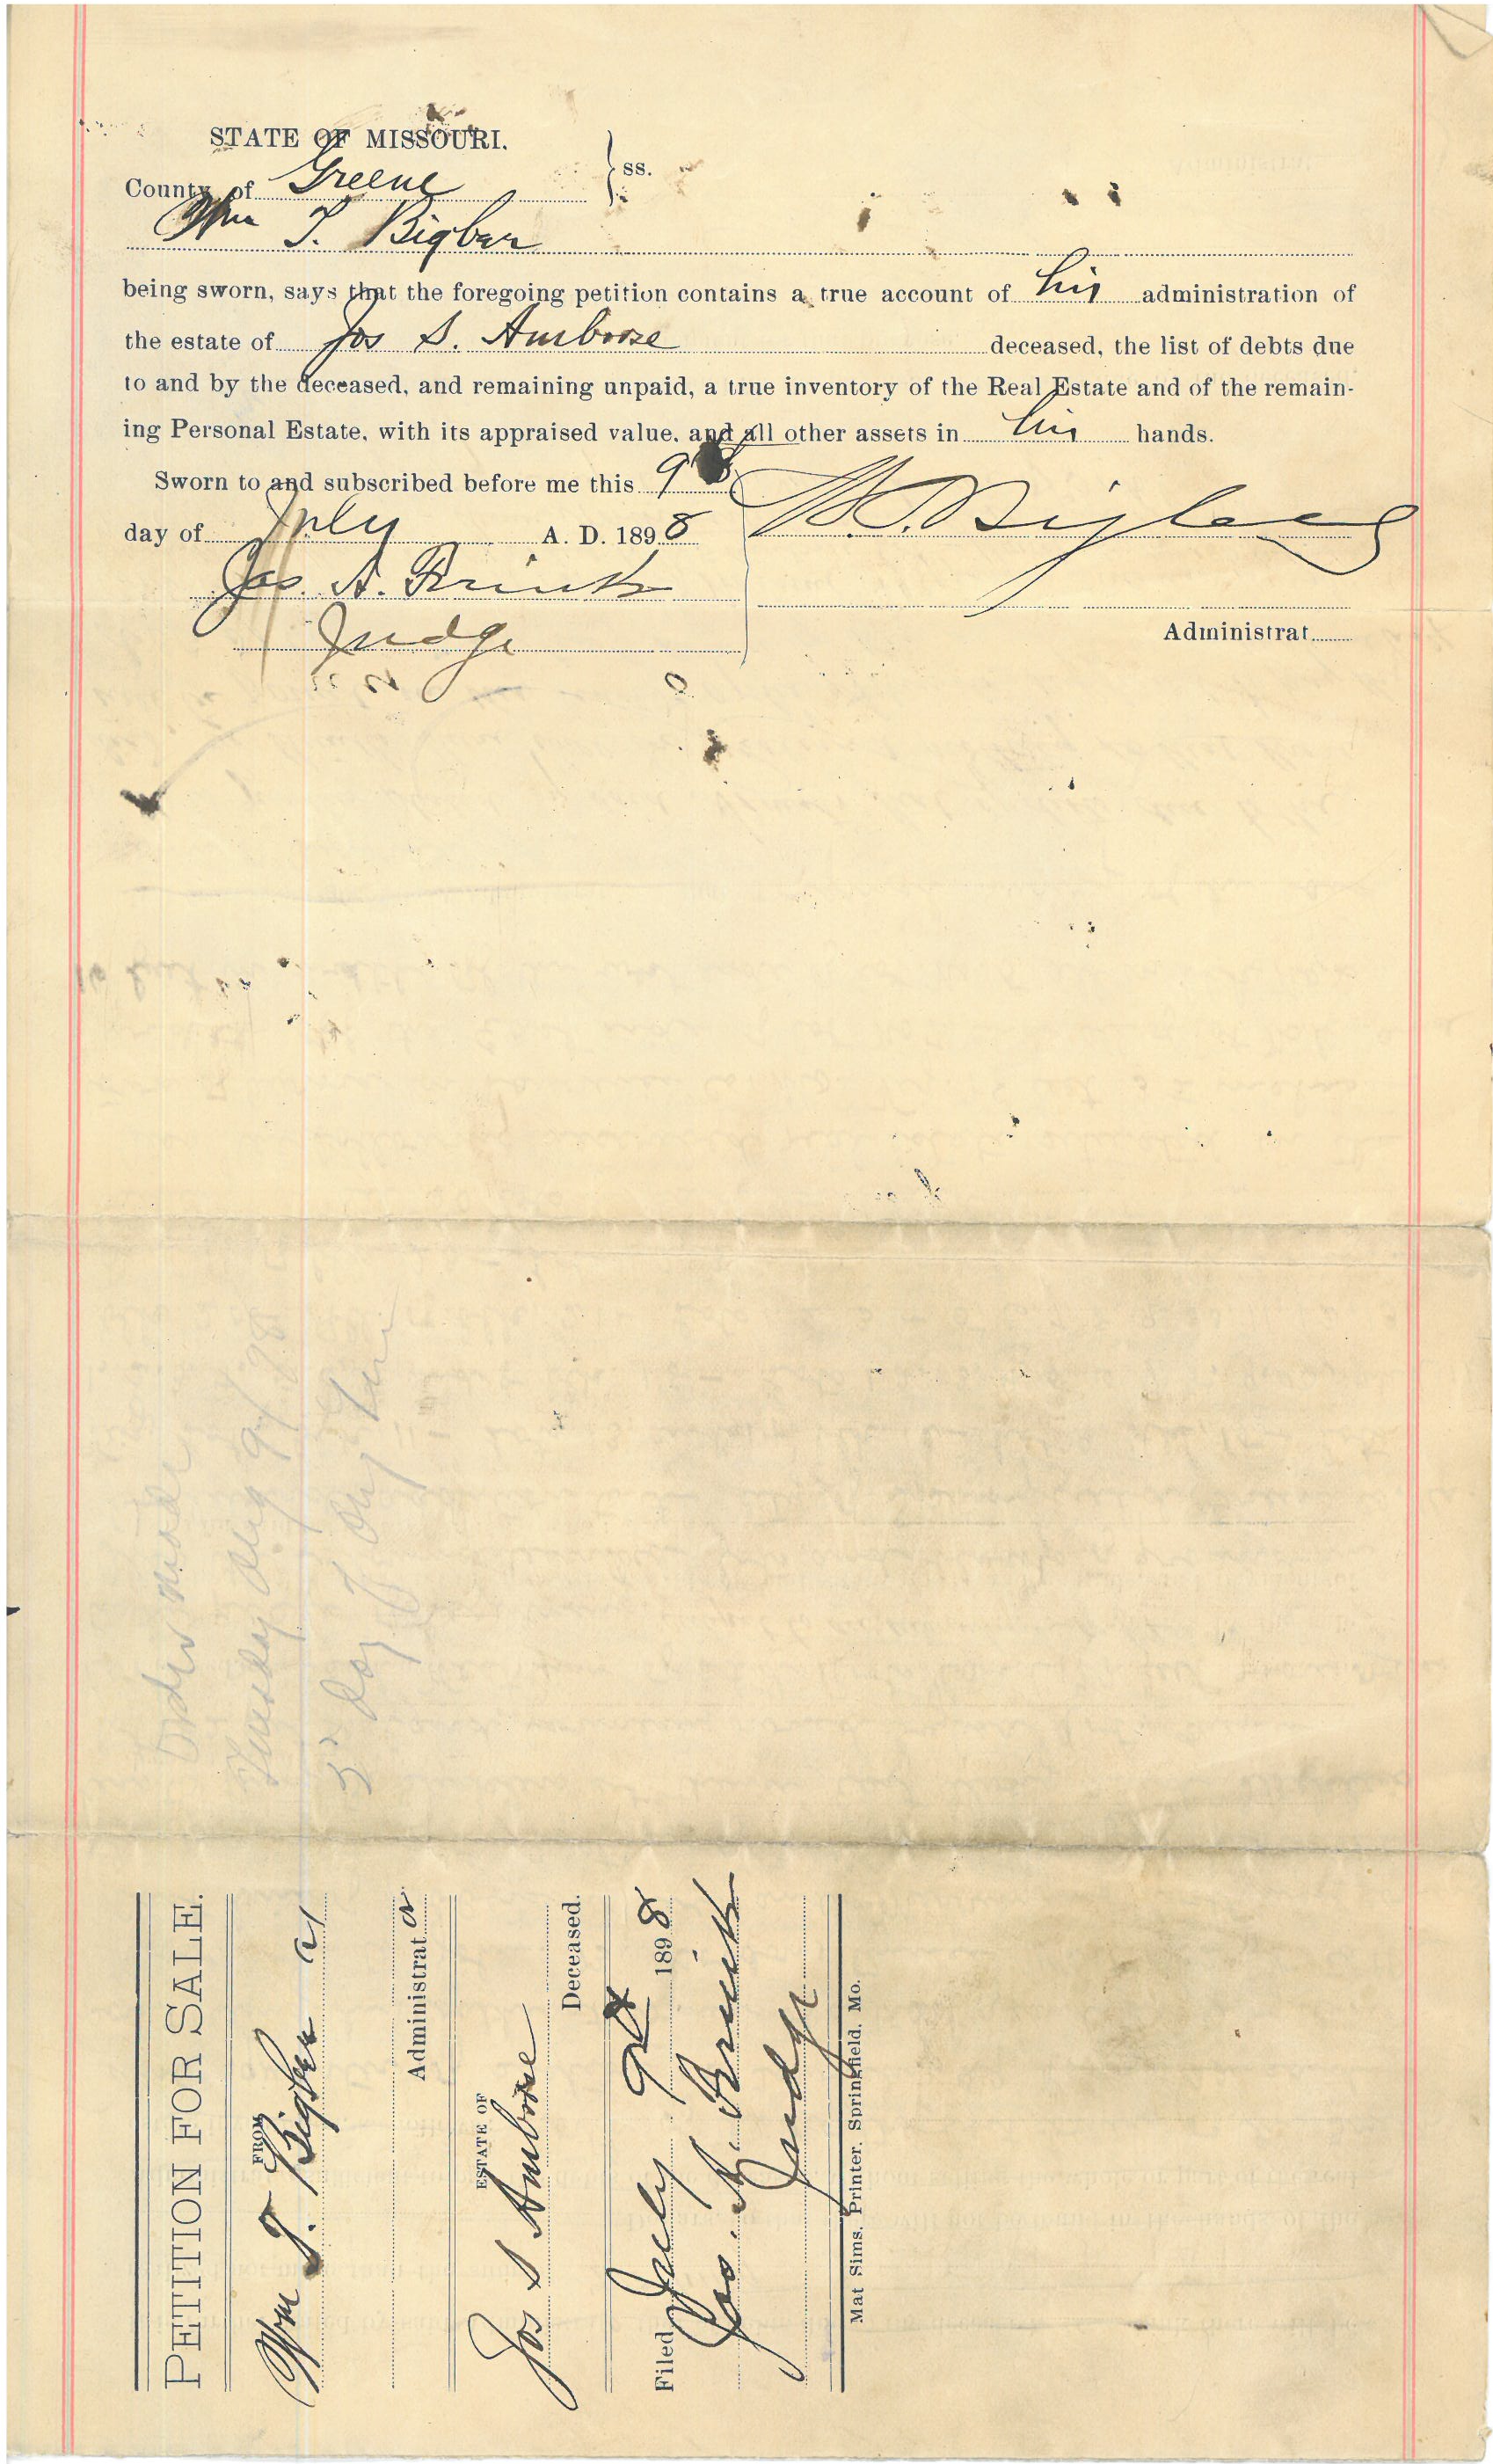 STATE OF MISSOURI.
County of Greene ss.
Wm T. Bigbee
being sworn, says that the foregoing petition contains a true account of his administration of
the estate of Jos S. Ambrose deceased, the list of debts due
to and by the deceased, and remaining unpaid, a true inventory of the Real Estate and of the remain-
ing Personal Estate, with its appraised value, and all other assets in his hands.
Sworn to and subscribed before me this 9
day of July A. D. 1898
Judge
Administrat
Order made
Tuesday Aug 9/98
5" Day
PETITION FOR SALE.
FROM
Wm T. Bigbee
Administrat or
ESTATE OF
Jos S Ambrose
Deceased.
Filed July 9th 1898
Judge
Mat Sims, Printer, Springfield, Mo.